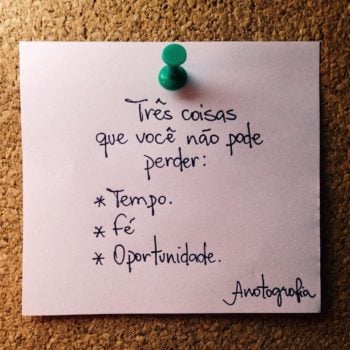 Três coisas
que você não pode
perder:
* Tempo.
* Fé
* Oportunidade.
Anotografia